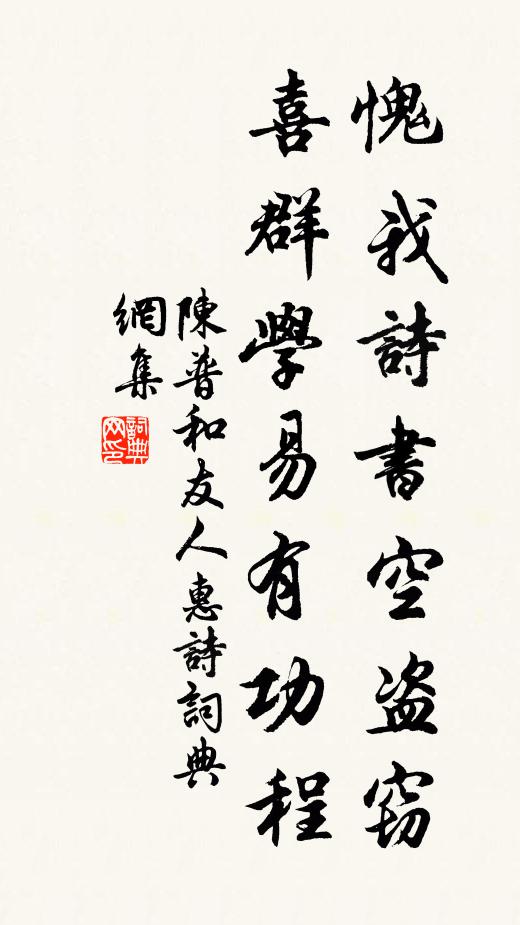 愧我詩書空盗窃
喜群學易有功程
陳普和友人惠詩詞典
網集
詞典
网印